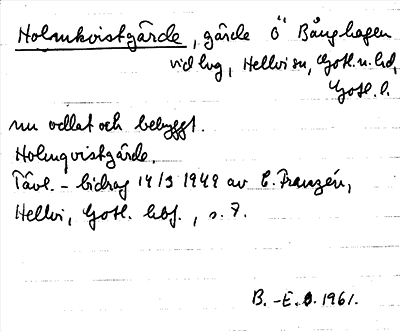 Holmkvistgärde, gärde Ö Bånghagen
vid lvg, Hellvi sn, Gotl. n. hd,
Gotl. l.
nu odlat och bebyggt.
Holmqvistgärde.
Tävl.-bidrag 14/3 1949 av E. Franzén,
Hellvi, Gotl. hbf., s. 7.
B.-E. O. 1961.